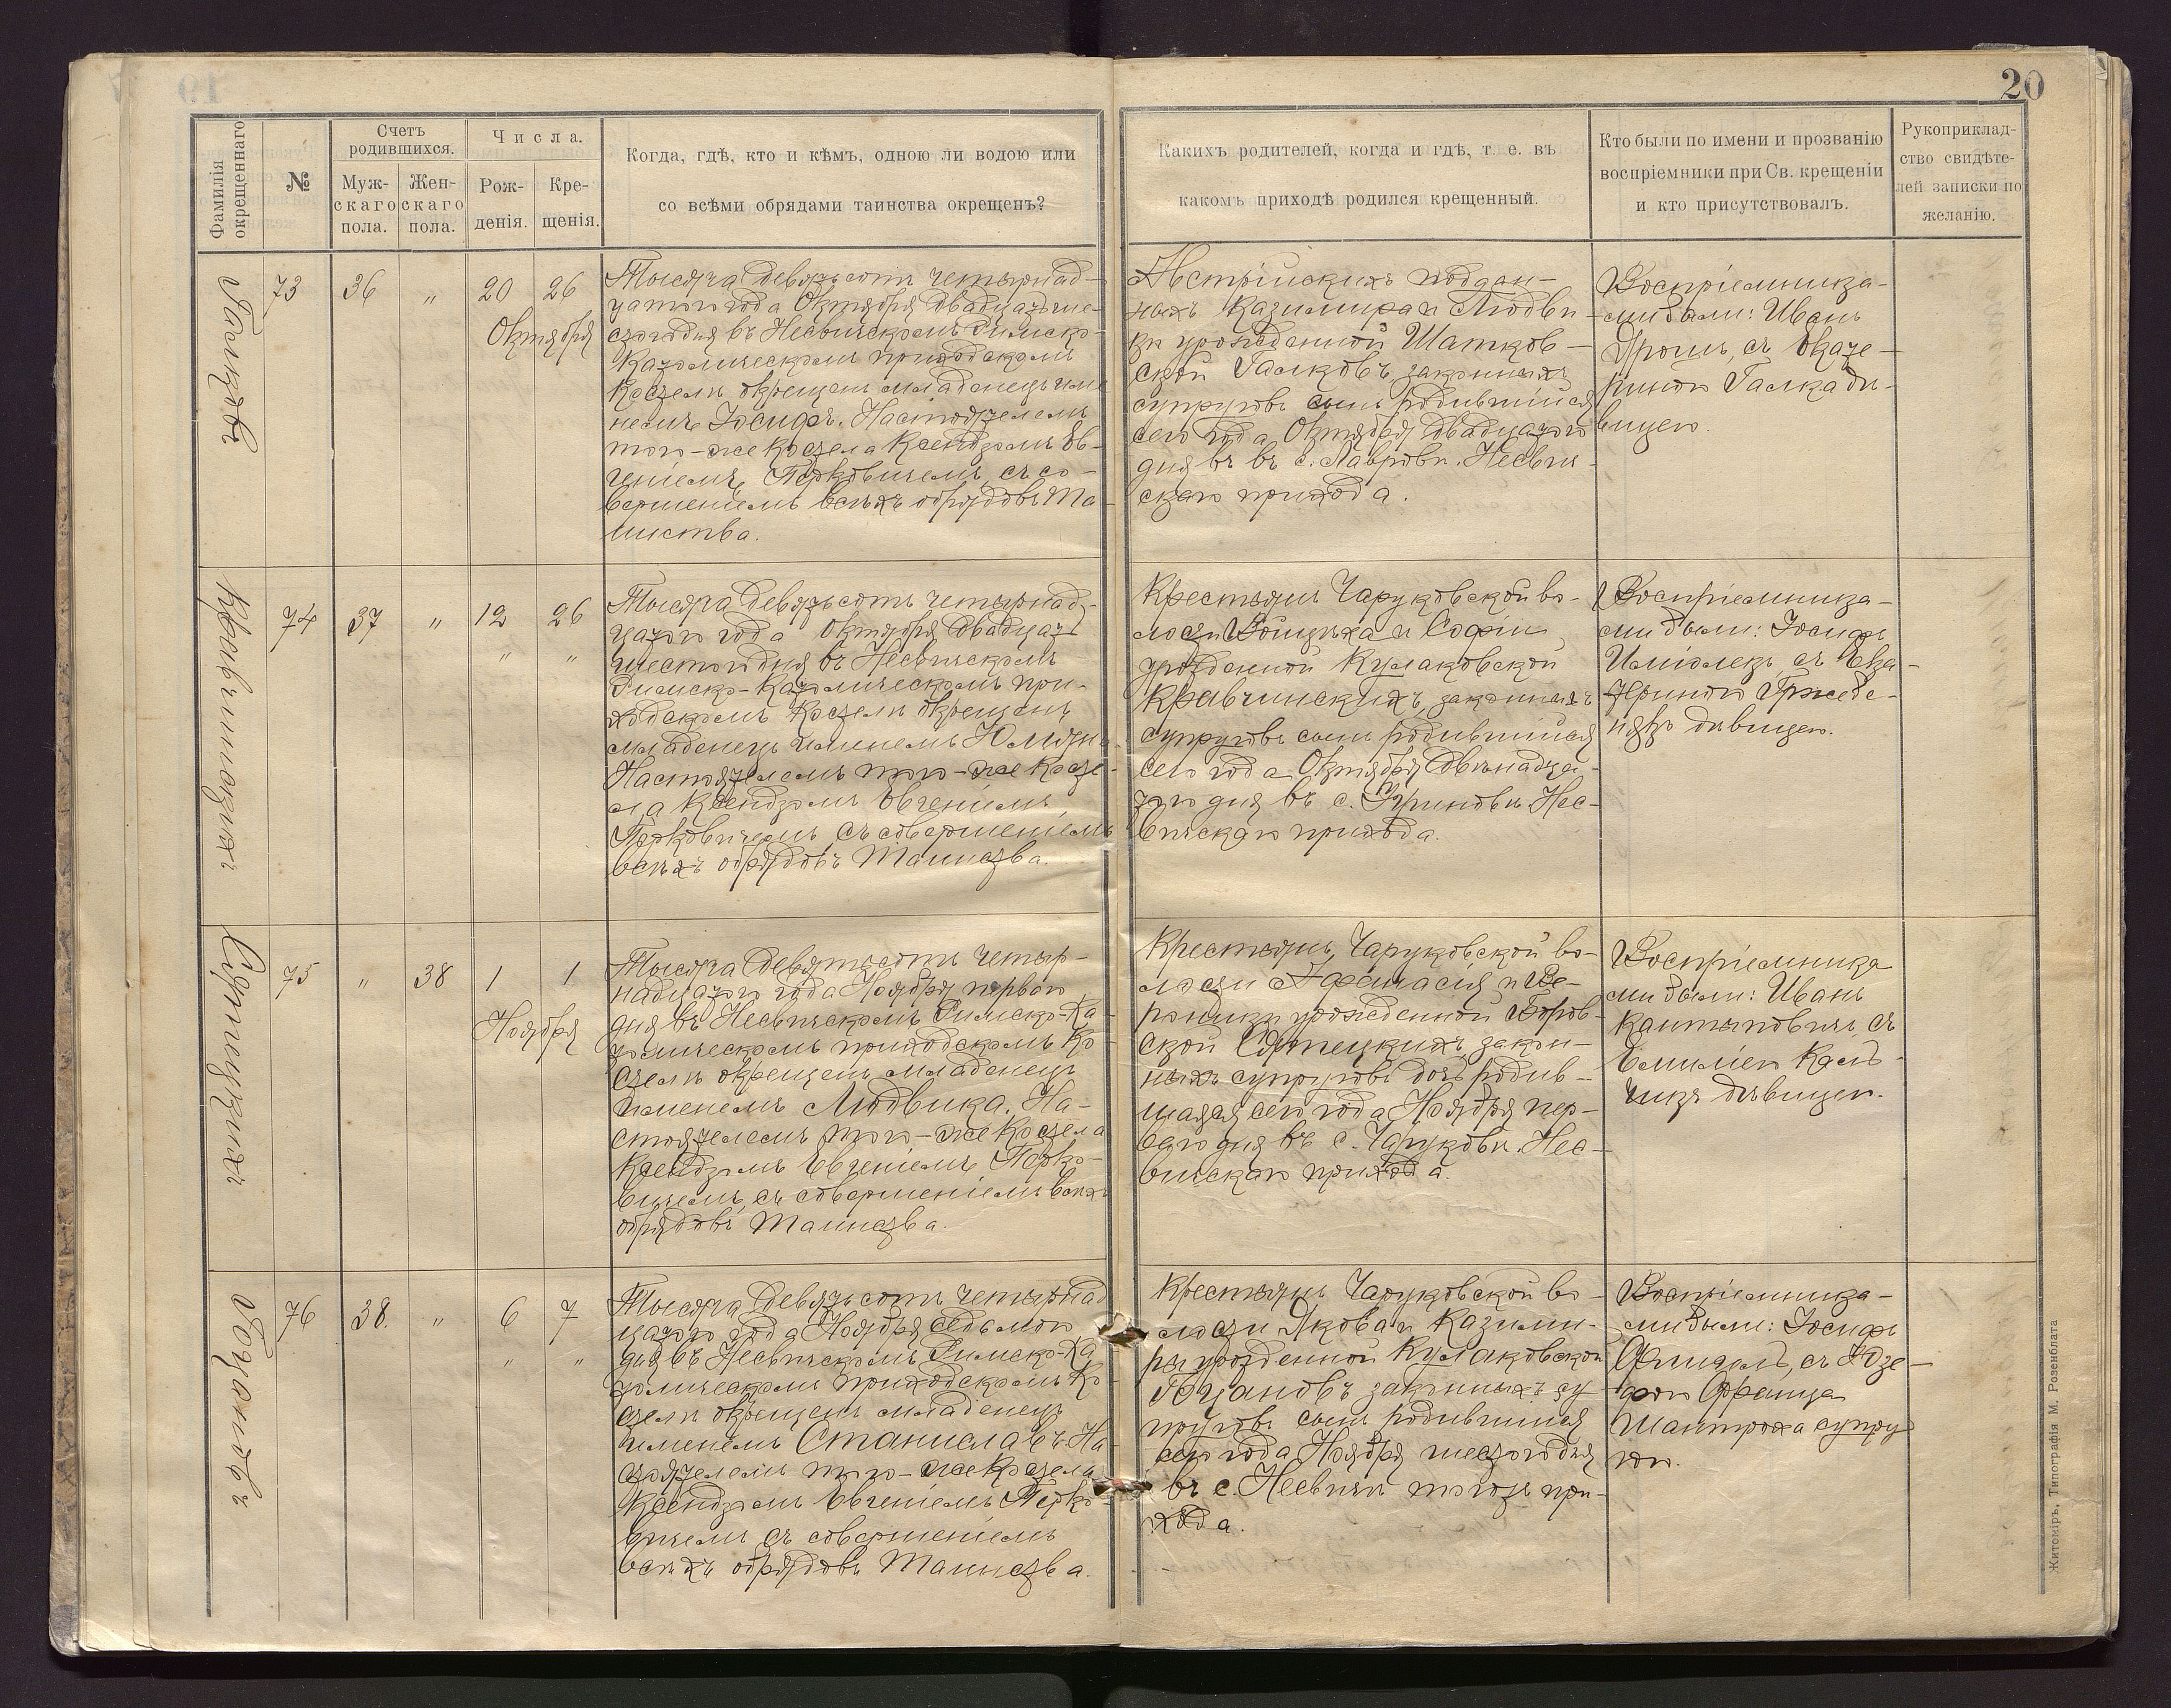 20
Фамилія окрещеннаго
№
Счетъ родившихся.
Муж-скаго пола.
Жен-скаго пола.
Числа.
Рож-денія.
Кре-щенія.
Когда, гдѣ, кто и кѣмъ, одною ли водою или
со всѣми обрядами таинства окрещенъ?
Какихъ родителей, когда и гдѣ, т. е. въ
какомъ приходѣ родился крещенный.
Кто были по имени и прозванію
воспріемники при Св. крещеніи
и кто присутствовалъ.
Рукоприклад-
ство свидѣте-
лей записки по
желанію.
Галковъ
73
36
"
20
26
Октября
Тысяча девятьсотъ четырнад-
цатого года Октября двадцатьше-
стогодня въ Несвичскомъ Римско-
Католическомъ приходскомъ
Костелѣ окрещенъ младенецъ име
немъ Іосифъ. Настоятелемъ
того-же Костела Ксендзомъ Ев-
геніемъ Перковичемъ, съ со-
вершеніемъ всѣхъ обрядовъ Та-
инства.
Австрійскихъ поддан-
ныхъ Казимира и Людви-
ки урожденной Шатков-
ской Галковъ законныхъ
супруговъ сынъ, родившійся
сего года Октября двадцатого
дня въ въ с. Лавровѣ. Несвич-
скаго прихода.
Воспріемника-
ми были: Иванъ
съ Екате-
риною Галка дѣ-
вицею.
74
37
"
12
26
"
"
Тысяча девятьсотъ четырнад-
цатого года Октября двадцать
шестогодня въ Несвичскомъ
Римско-Католическомъ при-
ходскомъ Костелѣ окрещенъ
младенецъ именемъ Юліянъ
Настоятелемъ того-же Косте-
ла Ксендзомъ Евгеніемъ
Перковичемъ, съ совершеніемъ
всѣхъ обрядовъ Таинства.
Крестьянъ Чаруковской во-
лости Войцѣха и Софіи,
урожденной Кулаковской
Кравчинскихъ, законныхъ
супруговъ сынъ, родившійся
сего года Октября двѣнадца-
того дня въ с. Несвичскаго прихода.
Воспріемника-
ми были: Іосифъ
съ Ека-
териною
дѣвицею.
75
"
38
1
1
Ноября
Тысяча девятьсотъ четыр-
надцатого года Ноября первого
дня въ Несвичскомъ Римско-Ка-
толическомъ приходскомъ Ко-
стелѣ окрещенъ младенецъ
именемъ Людвика. На-
стоятелемъ того-же Костела
Ксендзомъ Евгеніемъ Перко-
вичемъ, съ совершеніемъ всѣхъ
обрядовъ Таинства.
Крестьянъ, Чаруковской во-
лости Афанасія и Ве-
роники урожденной Боров-
ской закон-
ныхъ супруговъ дочь, родив-
шаяся сего года Ноября пер-
вого дня въ с. Чаруковѣ. Нес-
вичскаго прихода.
Воспріемника
ми были: Иванъ
съ
Емиліею
дѣвицею.
Гоцановъ
76
38.
"
6
7
"
"
Тысяча девятьсотъ четырнад
цатого года Ноября седьмого
дня въ Несвичскомъ Римско-Ка
толическомъ приходскомъ Ко-
стелѣ окрещенъ младенецъ
именемъ Станиславъ. На-
стоятелемъ того-же Костела
Ксендзомъ Евгеніемъ Перко-
вичемъ съ совершеніемъ
всѣхъ обрядовъ Таинства.
Крестьянъ Чаруковской во-
лости Якова и Казими-
ры урожденной Кулаковской
Гоцановъ законныхъ су-
пруговъ сынъ, родившійся
сего года Ноября шестогодня
въ с. Несвичи тогожъ при-
хода.
Воспріемника-
ми были: Іосифъ
съ Юзе-
фою Франца
супру
гою.
Житоміръ, Типографія М. Розенблата